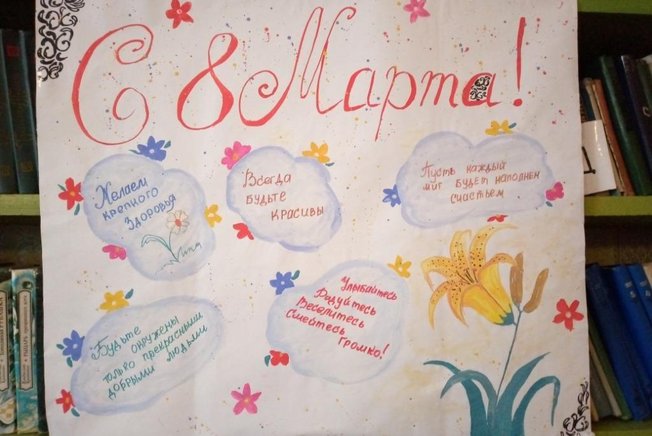 С 8 Марта!
Желаем
крепкого
Здоровья
Всегда
будьте
красивы
Пусть каждый
миг будет наполнен
счастьем
Будьте
окружены
только прекрасными
добрыми людьми
Улыбайтесь
Радуйтесь
Веселитесь
Смейтесь
громко!